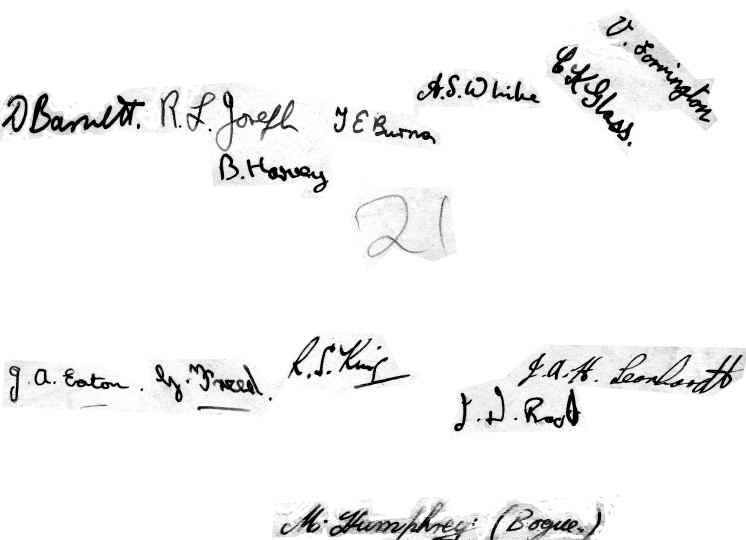 V. Torrington
E K Glass.
A.S. White
D Barnett. R. L. Joseph T E Burns
B. Harvey
21
R. S. King
J. A. H. Leonhardt
J. A. Eaton. G. Freed.
J. D.
M. Humphrey (Bogue.)